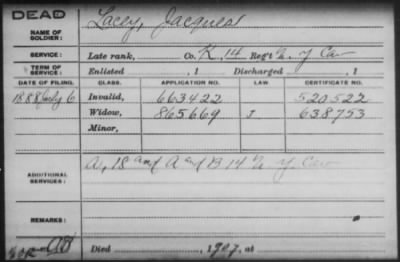 DEAD
NAME OF SOLDIER: Lacey, Jacques
SERVICE: Late rank, Co. K, 14 Reg't N. Y. Cav
TERM OF SERVICE: Enlisted , 1 Discharged , 1
DATE OF FILING. CLASS. APPLICATION NO. LAW. CERTIFICATE NO.
1888 July 6 Invalid, 663422 520522
Widow, 865669 638753
Minor,
ADDITIONAL SERVICES: A, 18 and A and B 14 N. Y. Cav
REMARKS:
Died 1907, at